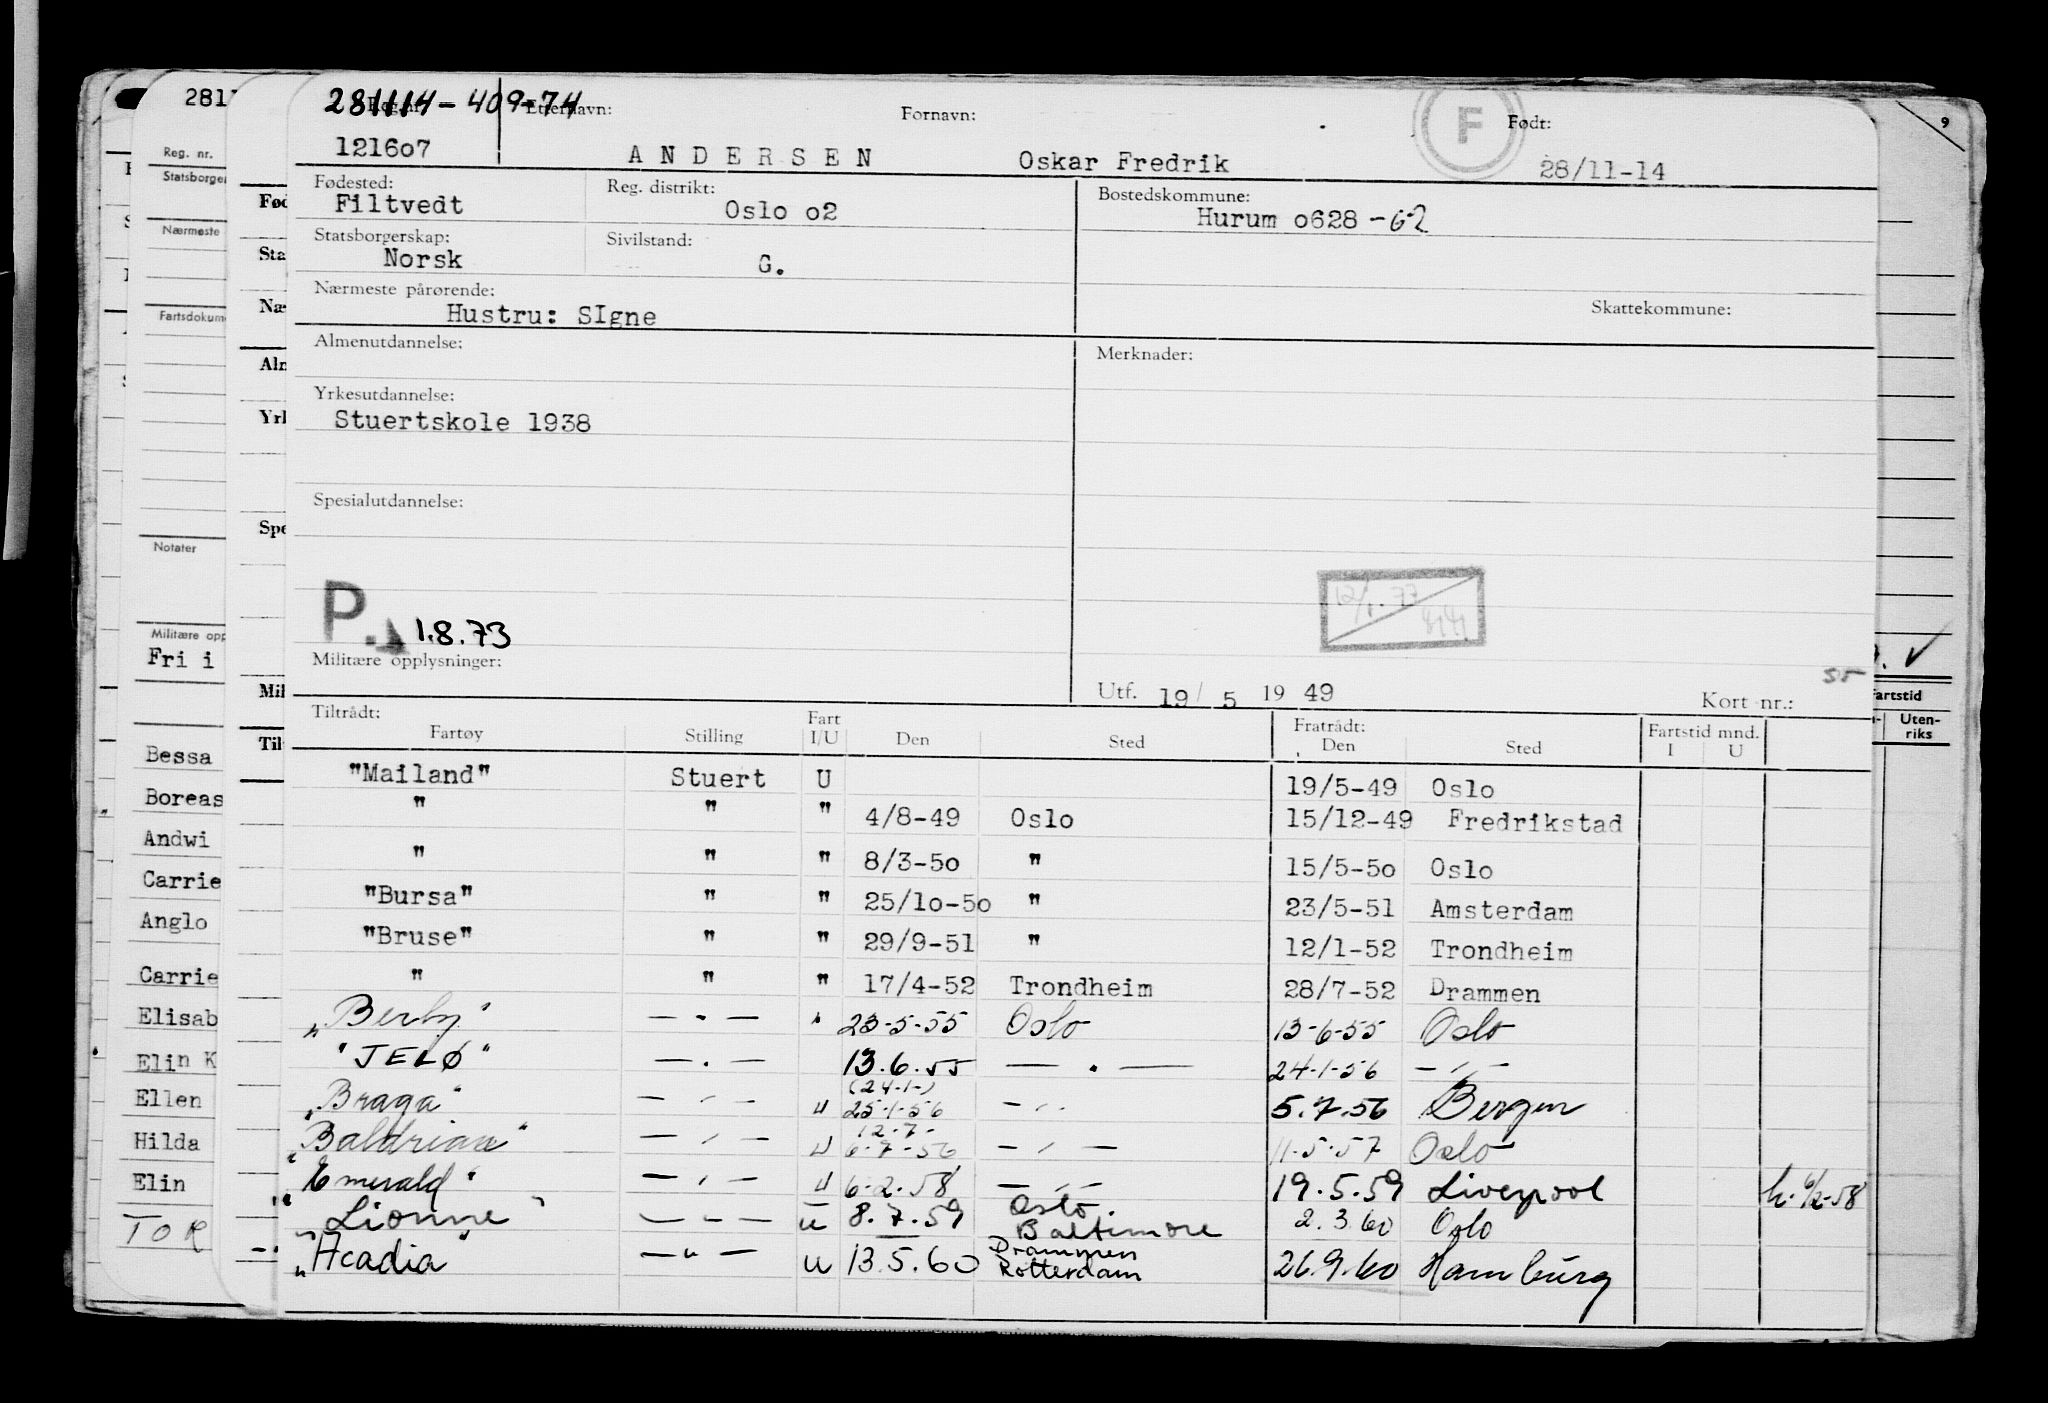 281114-409-74
Reg. nr. Etternavn: Fornavn: Født:
121607 ANDERSEN Oskar Fredrik 28/11-14
F
Fødested: Reg. distrikt: Bostedskommune:
Filtvedt Oslo o2 Hurum o628 -62
Statsborgerskap: Sivilstand:
Norsk G.
Nærmeste pårørende: Skattekommune:
Hustru: SIgne
Almenutdannelse: Merknader:
Yrkesutdannelse:
Stuertskole 1938
Spesialutdannelse:
P. 1.8.73
12/1.77
Militære opplysninger:
Utf. 19/5 1949 Kort nr.:
Tiltrådt: Fratrådt: Fartstid mnd.
Fartøy Stilling Fart I/U Den Sted Den Sted I U
"Mailand" Stuert U 19/5-49 Oslo
" " " 4/8-49 Oslo 15/12-49 Fredrikstad
" " " 8/3-5o " 15/5-5o Oslo
"Bursa" " " 25/1o-5o " 23/5-51 Amsterdam
"Bruse" " " 29/9-51 " 12/1-52 Trondheim
" " " 17/4-52 Trondheim 28/7-52 Drammen
"Berby" — " — " 23-5-55 Oslo 13-6-55 Oslo
"JELØ" — " — 13.6.55 — " — 24-1-56 — " —
(24-1-)
"Braga" — " — U 25-1-56 — " — 5.7.56 Bergen
12-7-
"Baldrian" — " — U 6-7-56 — " — 11-5-57 Oslo
"Emerald" — " — U 6-2-58 — " — 19.5.59 Liverpool h. 6/2-58
"Lionne" — " — U 8.7.59 Oslo. Baltimore 2.3.60 Oslo
"Acadia" — " — U 13.5.60 Drammen Rotterdam 26.9.60 Hamburg
2811
Reg. nr.
Statsborger
Nærmeste
Fartsdokum
Notater
Militære opp
Fri i
Bessa
Boreas
Andwi
Carrie
Anglo
Carrie
Elisab
Elin K
Ellen
Hilda
Elin
TOR
Fød
Sta
Næ
Aln
Yrk
Spe
Mil
Til
9
artstid
Uten-
riks